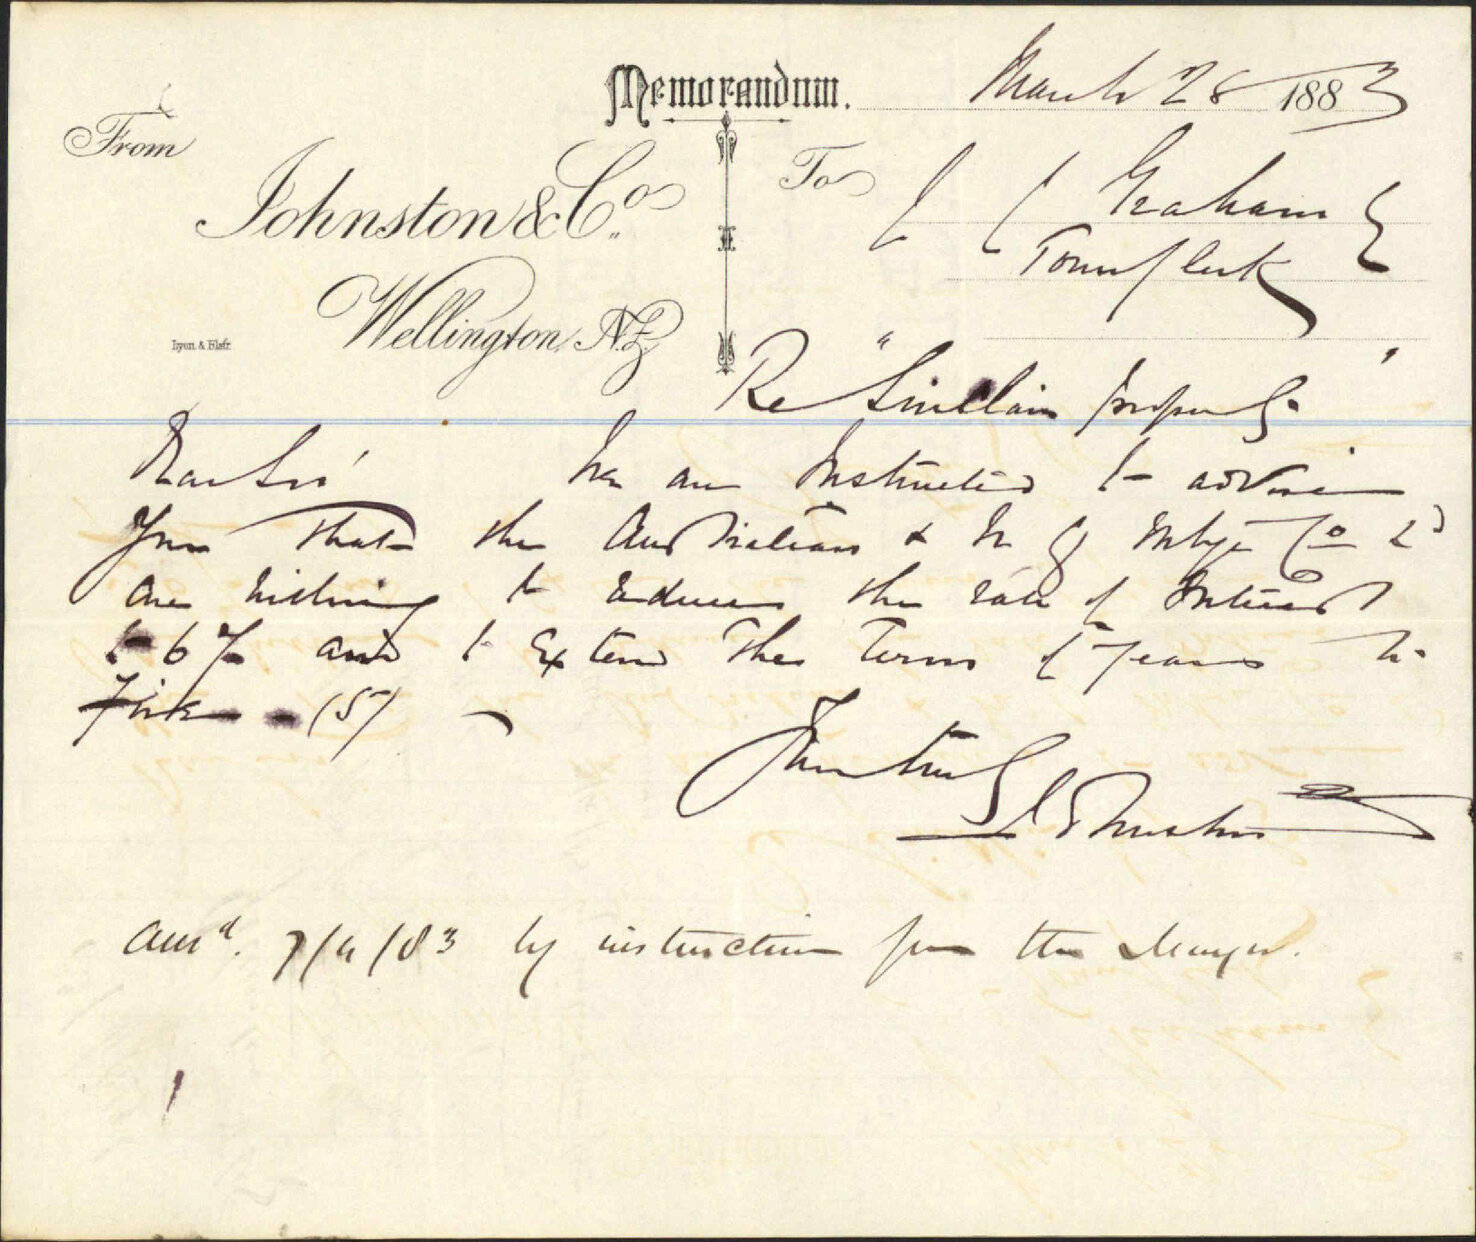 Memorandum.
March 28 1883
From
Johnston & Co.
Wellington, N.Z.
Lyon & Blair
To
Graham
Town Clerk
Re "Sinclair property"
Dear Sir We are Instructed to advise
You that the Australian & N Z Mtge Co Ld
are willing to reduce the rate of Interest
to 6 % and to Extend the Term of years to
Five (5)
Yours truly
Johnston
Ansd. 7/4/83 by instruction from the Mayor.